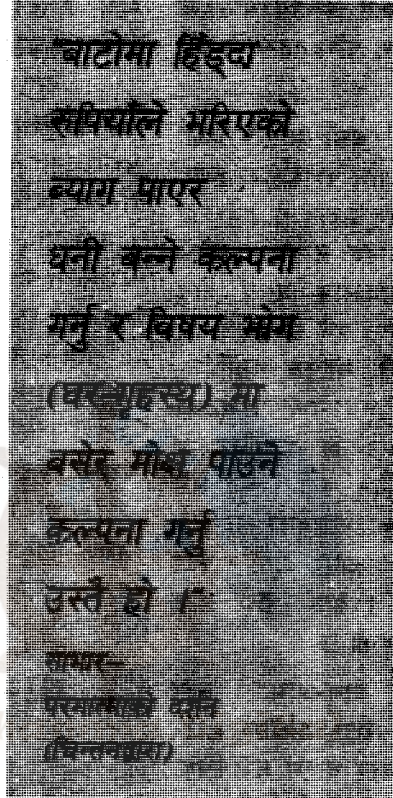 "बाटोमा हिँड्दा
रुपियाँले भरिएको
ब्याग पाएर
धनी बन्ने कल्पना
गर्नु र विषय भोग
(घर-गृहस्थ) मा
बसेर मोक्ष पाउने
कल्पना गर्नु
उस्तै हो ।"
साभार—
परमात्माको दर्शन